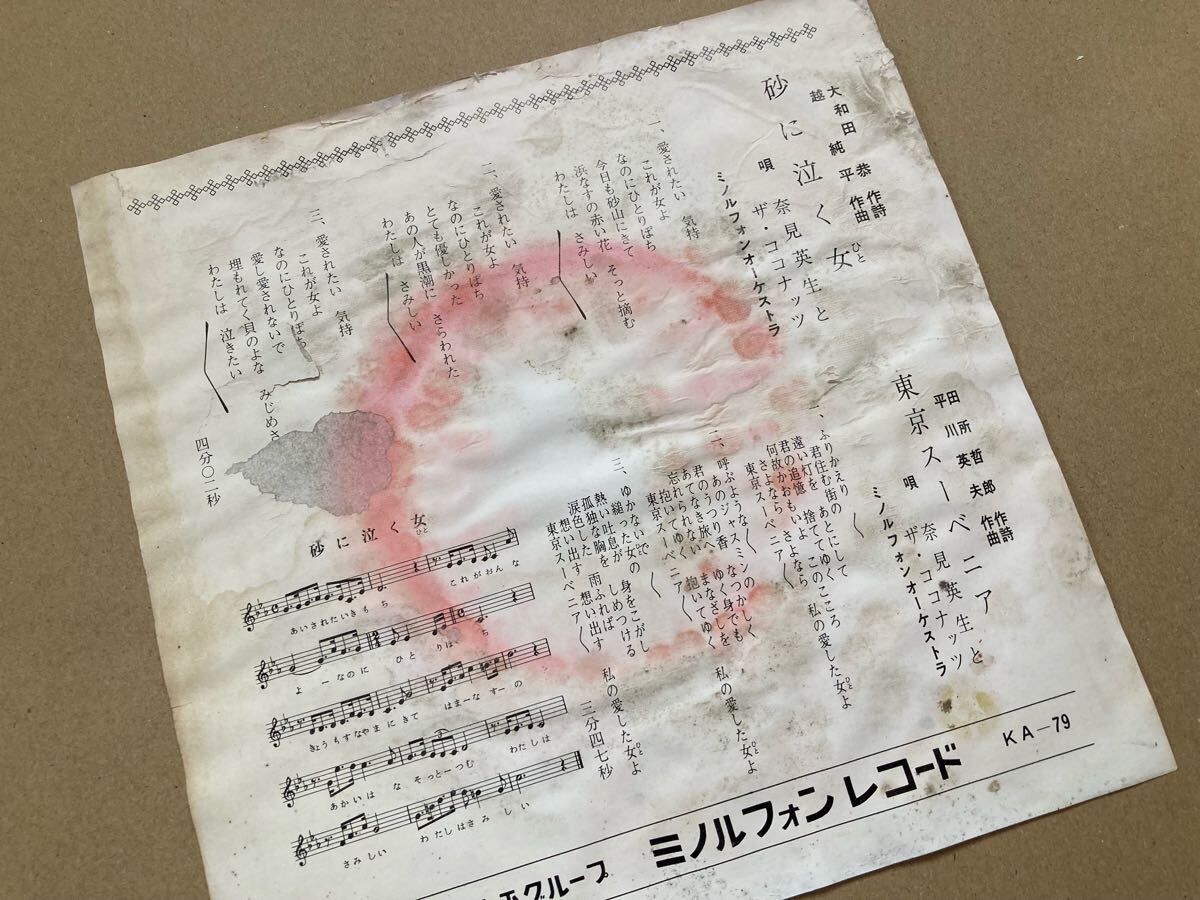 大和田純平 作詩
越 恭 作曲
砂に泣く女
ひと
唄 奈見英生と
ザ・ココナッツ
ミノルフォンオーケストラ
一、愛されたい 気持
これが女よ
なのにひとりぼち
今日も砂山にきて
浜なすの赤い花 そっと摘む
わたしは さみしい
二、愛されたい 気持
これが女よ
なのにひとりぼち
とても優しかった
あの人が黒潮に さらわれた
わたしは さみしい
三、愛されたい 気持
これが女よ
なのにひとりぼち
愛し愛されないで
埋もれてく貝のよな みじめさ
わたしは 泣きたい
四分〇二秒
東京スーベニア
田所哲郎 作詩
平川英夫 作曲
唄 奈見英生と
ザ・ココナッツ
ミノルフォンオーケストラ
一、ふりかえり
君住む街の あとにして
遠い灯を 捨ててく このこころ
君の追憶 もいよ
何故かおもいよ さよなら 私の愛した女よ
さよなら
東京スーベニア
二、呼ぶような
あのジャスミンの なつかしく
君のうつり香 ゆく身でも
あてなき旅へ まなざしを
忘れられない 抱いてゆく
抱いてゆく 私の愛した女よ
東京スーベニア
三、ゆかないで
縋った女の 身をこがし
熱い吐息が しめつける
孤独な胸を 雨ふれば
涙色した 想い出す
想い出す 私の愛した女よ
東京スーベニア
三分四七秒
砂に泣く女
ひと
あいされたいきもち これがおんな
よ ー なのに ひとりぼ ち
きょうもすなやまにきて はまーな すーの
あかいは な そっとーつむ わたしは
さみしい わたしはさみ しい
グループ ミノルフォンレコード KA-79